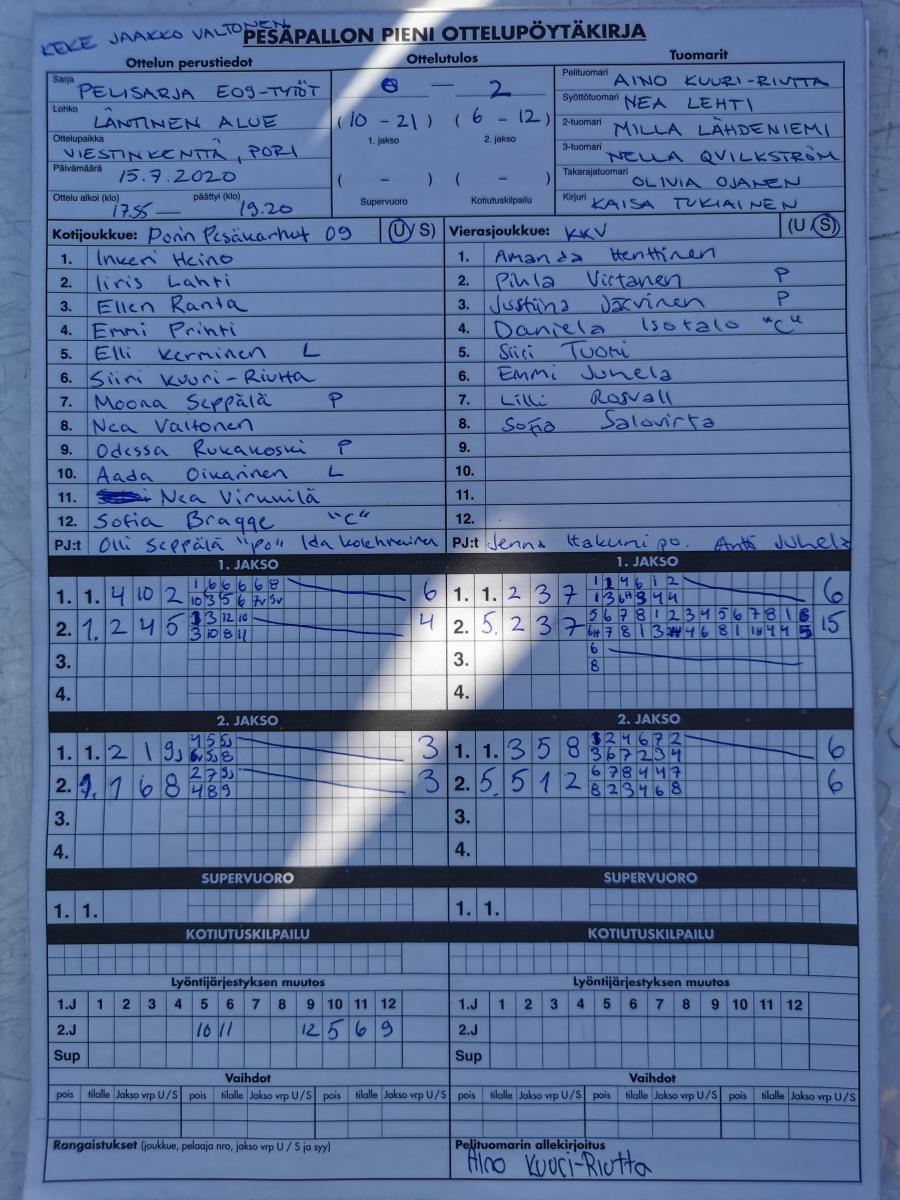 KEKE JAAKKO VALTONEN
PESÄPALLON PIENI OTTELUPÖYTÄKIRJA
Ottelun perustiedot Ottelutulos Tuomarit
Sarja PELISARJA E09-TYTÖT
Lohko LÄNTINEN ALUE
Ottelupaikka VIESTINKENTTÄ, PORI
Päivämäärä 15.7.2020
Ottelu alkoi (klo) 17.55 — päättyi (klo) 19.20
0 — 2
(10 - 21) (6 - 12)
1. jakso 2. jakso
( - ) ( - )
Supervuoro Kotiutuskilpailu
Pelituomari AINO KUURI-RIUTTA
Syöttötuomari NEA LEHTI
2-tuomari MILLA LÄHDENIEMI
3-tuomari NELLA QVILKSTRÖM
Takarajatuomari OLIVIA OJANEN
Kirjuri KAISA TUKIAINEN
Kotijoukkue: Porin Pesäkarhut 09 (U/S)
1. Inkeri Heino
2. Iiris Lahti
3. Ellen Ranta
4. Emmi Printi
5. Elli Kerminen L
6. Siiri Kuuri-Riutta
7. Moona Seppälä P
8. Nea Valtonen
9. Odessa Rukakoski P
10. Aada Oikarinen L
11. Nea Virunilä
12. Sofia Bragge "C"
PJ:t Olli Seppälä "po" Ida Kolehmainen
Vierasjoukkue: KKV (U/S)
1. Amanda Henttinen
2. Pihla Virtanen P
3. Justiina Järvinen P
4. Daniela Isotalo "C"
5. Siiri Tuomi
6. Emmi Juhela
7. Lilli Rosvall
8. Sofia Salovirta
9.
10.
11.
12.
PJ:t Jenna Hakuni po. Antti Juhela
1. JAKSO
1. 1. 4 10 2 1 6 6 6 6 8 6
10 3 5 6 7v 9v
2. 1. 2 4 5 1 3 12 10 4
3 10 8 11
3.
4.
1. JAKSO
1. 1. 2 3 7 1 1 4 6 1 2 6
1 3 6H 3 4 4
2. 5. 2 3 7 5 6 7 8 1 2 3 4 5 6 7 8 1 6 15
6H 7 8 1 3 4 6 8 1 1H 4 4 5
3. 6
8
4.
2. JAKSO
1. 1. 2 1 9J 4 5 5J 3
6v 5 8
2. 1. 1 6 8 2 7 9J 3
4 8 9
3.
4.
2. JAKSO
1. 1. 3 5 8 1 2 4 6 7 2 6
3 6 7 2 3 4
2. 5. 5 1 2 6 7 8 4 4 7 6
8 2 3 4 6 8
3.
4.
SUPERVUORO SUPERVUORO
1. 1. 1. 1.
KOTIUTUSKILPAILU KOTIUTUSKILPAILU
Lyöntijärjestyksen muutos Lyöntijärjestyksen muutos
1.J 1 2 3 4 5 6 7 8 9 10 11 12 1.J 1 2 3 4 5 6 7 8 9 10 11 12
2.J 10 11 12 5 6 9 2.J
Sup Sup
Vaihdot Vaihdot
pois tilalle Jakso vrp U/S pois tilalle Jakso vrp U/S pois tilalle Jakso vrp U/S pois tilalle Jakso vrp U/S pois tilalle Jakso vrp U/S pois tilalle Jakso vrp U/S
Rangaistukset (joukkue, pelaaja nro, jakso vrp U / S ja syy) Pelituomarin allekirjoitus
Aino Kuuri-Riutta